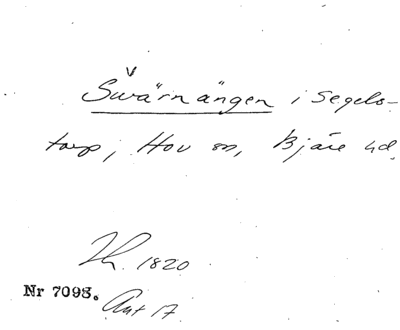 Svärnängen i Segels-
torp, Hov sn, Bjäre hd.
1820
Nr 7098.
Ant 17